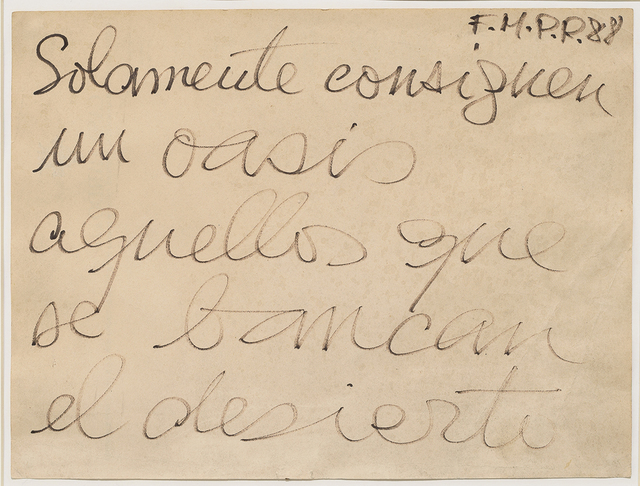 F.M.P.R.88
Solamente consiguen
un oasis
aquellos que
se bancan
el desierto